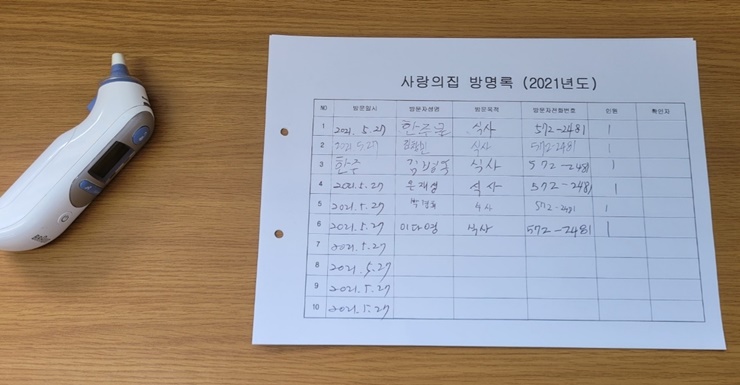 사랑의집 방명록 (2021년도)
NO 방문일시 방문자성명 방문목적 방문자전화번호 인원 확인자
1 2021. 5.27 한주 식사 572-2481 1
2 2021 5.27 식사 572-2481 1
3 한주 김 식사 572-2481 1
4 2021.5.27 윤재성 식사 572-2481 1
5 2021.5.27 박 식사 572-2481 1
6 2021.5.27 이다영 식사 572-2481 1
7 2021.5.27
8 2021.5.27
9 2021.5.27
10 2021.5.27